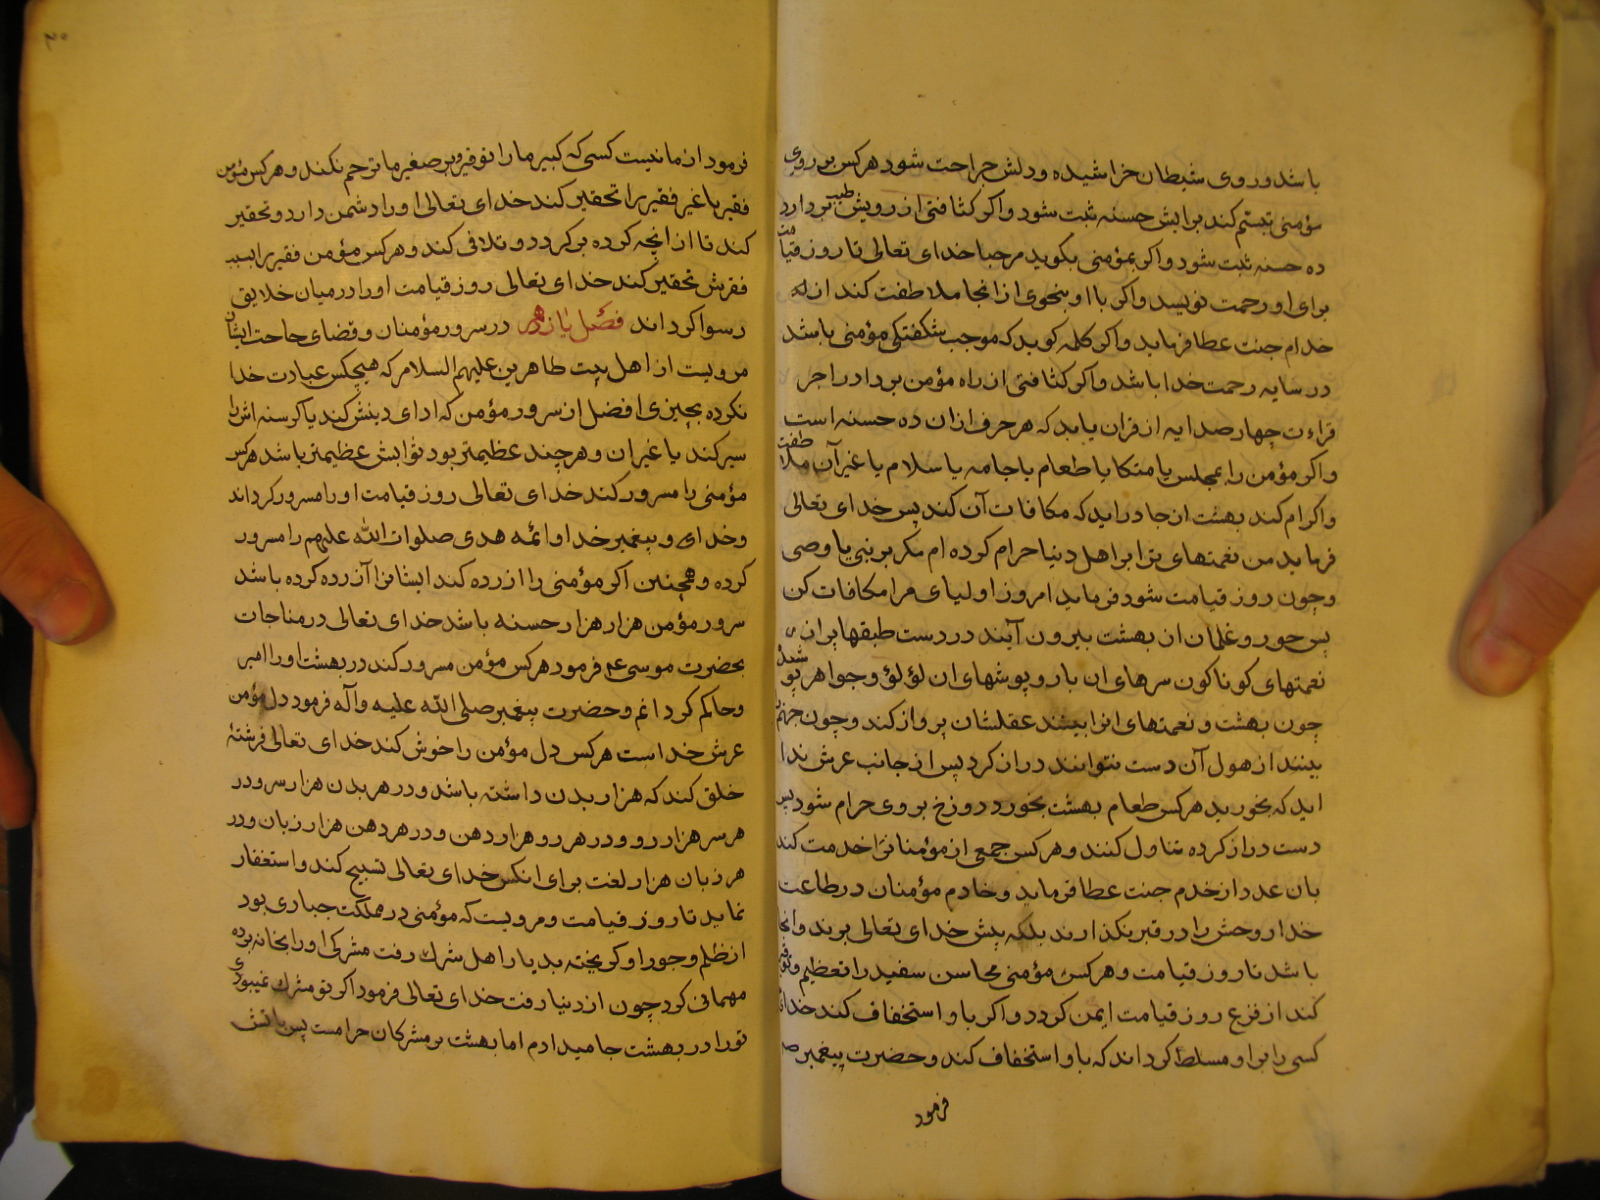 باشد و روی شیطان خراشیده و دلش جراحت شود هرکس بر روی
مؤمنی تبسم کند برایش حسنه ثبت شود واکر کثافتی از رویش بردارد
ده حسنه ثبت شود واکر بمؤمنی بکوید مرحبا خدای تعالی تا روز قیامت
برای او رحمت نویسد واکر با او بنحوی از انحا ملاطفت کند از
خدام جنت عطا فرماید واکر کلمه کوید که موجب شکفتکی مؤمنی باشد
در سایه رحمت خدا باشد واکر کثافتی از راه مؤمن بردارد اجر
قراءت چهارصد ایه از قران یابد که هر حرف ازان ده حسنه است
واکر مؤمن را بمجلس یا متکا یا طعام یا جامه یا سلام یا غیر آن ملاطفت
واکرام کند بهشت ازجا دراید که مکافات آن کند پس خدای تعالی
فرماید من نعمتهای ترا بر اهل دنیا حرام کرده ام مکر بر نبی یا وصی
وچون روز قیامت شود فرماید امروز اولیای مرا مکافات کن
پس حور و غلمان از بهشت بیرون آیند در دست طبقها پر از
نعمتهای کوناکون سرهای ان بار و پوشهای ان لؤلؤ و جواهر پوشیده
چون بهشت و نعمتهای انرا بینند عقلشان پرواز کند وچون جهنم
بینند از هول آن دست نتوانند دراز کرد پس از جانب عرش ندا
اید که بخورید هرکس طعام بهشت بخورد دوزخ بر وی حرام شود پس
دست دراز کرده تناول کنند و هرکس جمعی از مؤمنانرا خدمت کند
بان عدد از خدم جنت عطا فرماید و خادم مؤمنان در طاعت
خدا روحش را در قبر نکذارند بلکه پیش خدای تعالی برند وانجا
باشد تا روز قیامت و هرکس مؤمنی محاسن سفید را تعظیم وتوقیر
کند از فزع روز قیامت ایمن کردد واکر باو استخفاف کند خدا
کسی را برا و مسلط کرداند که باو استخفاف کند و حضرت پیغمبر ص
فرمود
۳۰
فرمود از ما نیست کسی که کبیر ما را توقیر و بر صغیر ما ترحم نکند و هرکس مؤمن
فقیر یا غیر فقیر را تحقیر کند خدای تعالی او را دشمن دارد و تحقیر
کند تا از انچه کرده برکردد و تلافی کند و هرکس مؤمن فقیر را بسبب
فقرش تحقیر کند خدای تعالی روز قیامت او را در میان خلایق
رسوا کرداند فصل یازدهم در سرور مؤمنان و قضای حاجت ایشان
مرویست از اهل بیت طاهرین علیهم السلام که هیچکس عبادت خدا
نکرده بچیزی افضل از سرور مؤمن که ادای دینش کند یا کرسنه اش را
سیر کند یا غیر ان و هرچند عظیمتر بود ثوابش عظیمتر باشد هرکس
مؤمنی را مسرور کند خدای تعالی روز قیامت او را مسرور کرداند
وخدای و پیغمبر خدا و ائمه هدی صلوات الله علیهم را مسرور
کرده و همچنین اکر مؤمنی را ازرده کند ایشانرا آزرده کرده باشد
سرور مؤمن هزار هزار حسنه باشد خدای تعالی در مناجات
بحضرت موسی ع م فرمود هرکس مؤمن مسرور کند در بهشت او را امیر
وحاکم کردانم و حضرت پیغمبر صلی الله علیه وآله فرمود دل مؤمن
عرش خداست هرکس دل مؤمن را خوش کند خدای تعالی فرشتهٔ
خلق کند که هزار بدن داشته باشد و در هر بدن هزار سر و در
هر سر هزار رو و در هر رو هزار دهن و در هر دهن هزار زبان و در
هر زبان هزار لغت برای انکس خدای تعالی تسبیح کند و استغفار
نماید تا روز قیامت و مرویست که مؤمنی در مملکت جباری بود
از ظلم وجور او کریخته بدیار اهل شرك رفت مشرکی او را بخانه برده
مهمانی کرد چون از دنیا رفت خدای تعالی فرمود اکر تو مشرك نمیبودی
تو را در بهشت جا میدادم اما بهشت بر مشرکان حرامست پس باتش